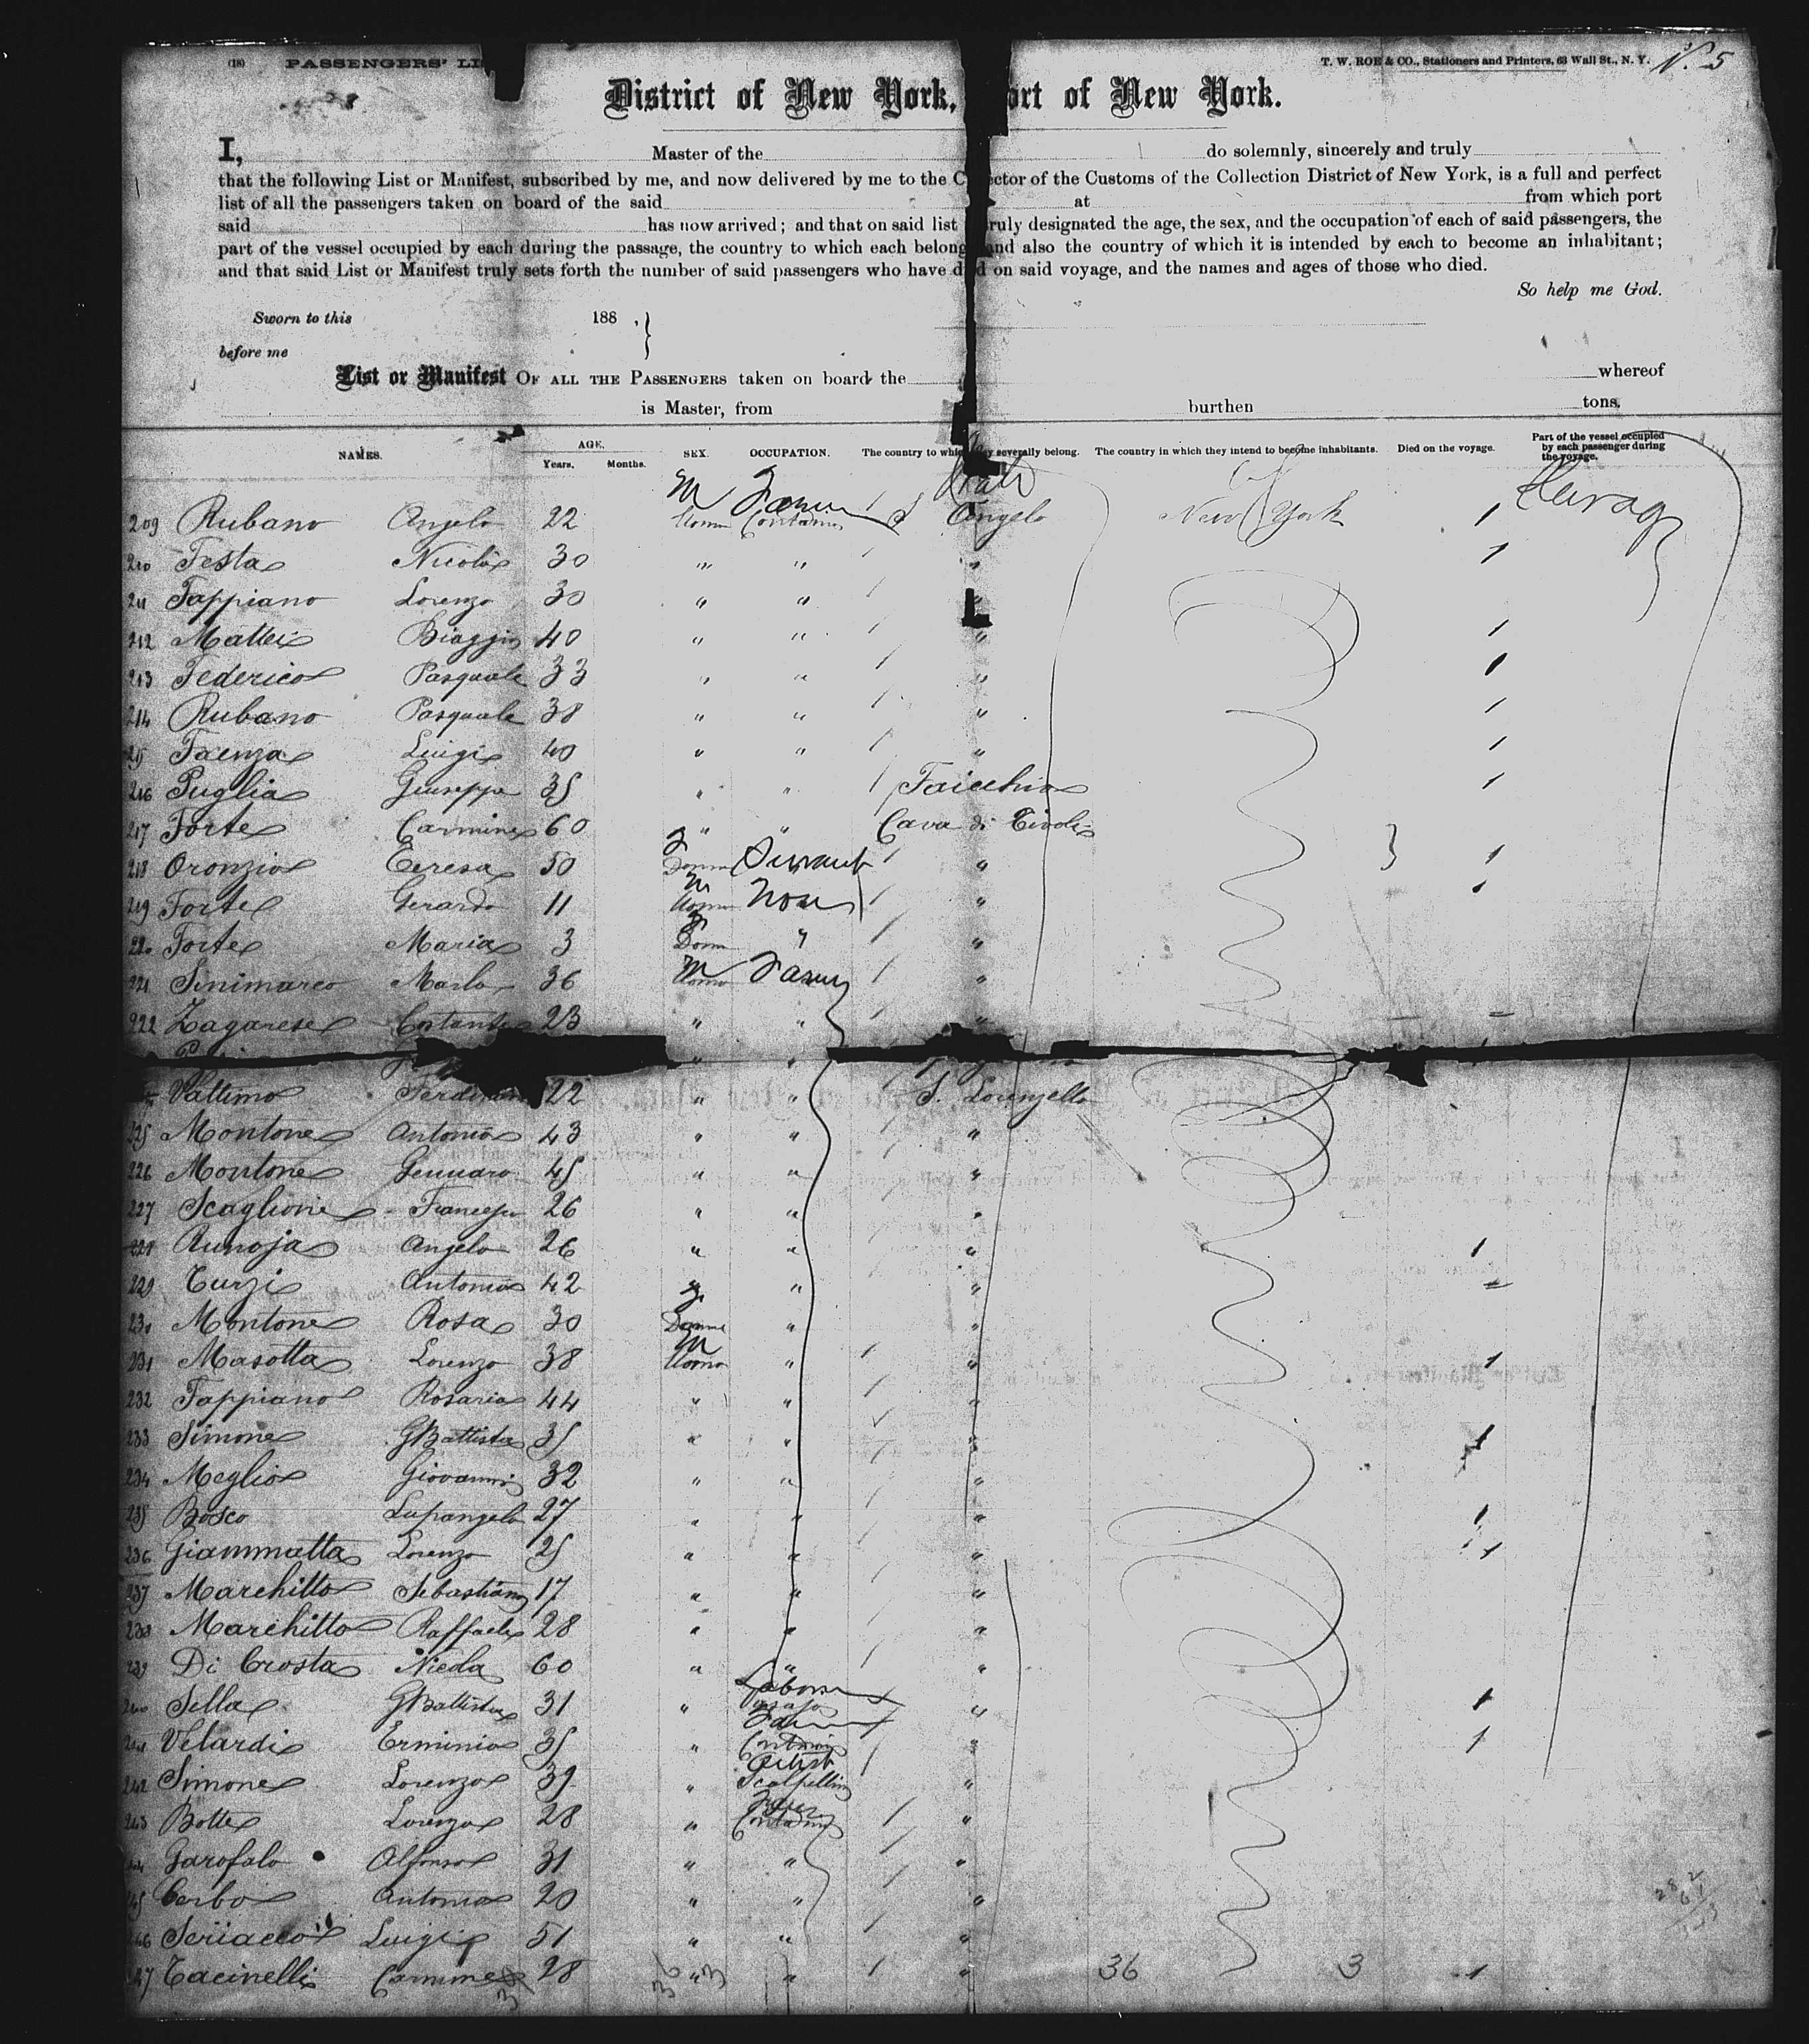 (18) PASSENGERS' LI
T. W. ROE & CO., Stationers and Printers, 63 Wall St., N. Y. No. 5
District of New York, ort of New York.
I, Master of the do solemnly, sincerely and truly
that the following List or Manifest, subscribed by me, and now delivered by me to the C ector of the Customs of the Collection District of New York, is a full and perfect
list of all the passengers taken on board of the said at from which port
said has now arrived; and that on said list truly designated the age, the sex, and the occupation of each of said passengers, the
part of the vessel occupied by each during the passage, the country to which each belong and also the country of which it is intended by each to become an inhabitant;
and that said List or Manifest truly sets forth the number of said passengers who have d d on said voyage, and the names and ages of those who died.
So help me God.
Sworn to this 188 , }
before me
List or Manifest OF ALL THE PASSENGERS taken on board the whereof
is Master, from burthen tons.
NAMES. AGE. Years. Months. SEX. OCCUPATION. The country to which they severally belong. The country in which they intend to become inhabitants. Died on the voyage. Part of the vessel occupied by each passenger during the voyage.
M Farmer Italy
209 Rubano Angelo 22 Uomo Contadino S. Angelo New York
210 Testa Nicola 30 " " "
211 Tappiano Lorenzo 30 " " "
212 Mattei Biaggio 40 " " "
213 Federico Pasquale 33 " " "
214 Rubano Pasquale 38 " " "
215 Faenza Luigi 40 " " "
216 Puglia Giuseppe 35 " " Faicchio
217 Forte Carmine 60 " " Cava di Tivoli
218 Oronzio Teresa 50 F Donna Servant "
219 Forte Gerardo 11 M Uomo None "
220 Forte Maria 3 F Donna " "
221 Sinimarco 36 M Uomo Farmer "
222 Zagarese Costantino 23 " " "
" "
Vattimo Ferdinan 22 " "
225 Montone Antonio 43 " " "
226 Montone Gennaro 45 " " "
227 Scaglione Francesco 26 " " "
228 Angelo 26 " " "
229 Turzi Antonio 42 " "
230 Montone Rosa 30 F Donna " "
231 Masotta Lorenzo 38 M Uomo " "
232 Tappiano Rosario 44 " " "
233 Simone GBattista 35 " " "
234 Meglio Giovanni 32 " " "
235 Bosco Lupangelo 27 " " "
236 Giammatta Lorenzo 25 " " "
237 Marchitto Sebastiano 17 " " "
238 Marchitto Raffaele 28 " " "
239 Di Crosta Nicola 60 " " "
240 Sella GBattista 31 " Laborer "
241 Velardi Erminio 35 " Farmer Contadino "
242 Simone Lorenzo 39 " Artist Scalpellino "
243 Botte Lorenzo 28 " Farmer Contadino "
244 Garofalo Alfonso 31 " " "
245 Cerbo Antonio 20 " " "
246 Luigi 51 " " "
247 Tacinelli Carmine 28 " " "
36 3 36 3